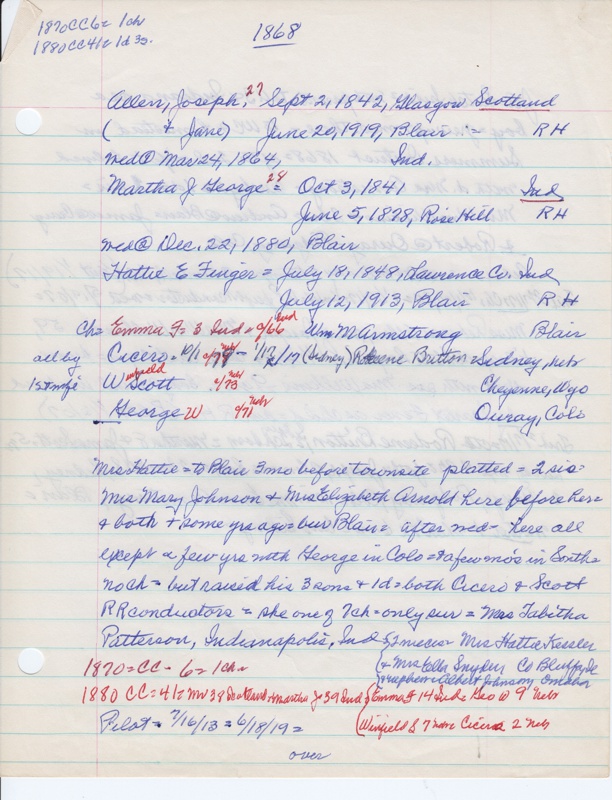 1870CC6= 1ch
1880CC41= 1d 3s.
1868
Allen, Joseph, 27 Sept 2, 1842, Glasgow Scotland
( + Jane) June 20, 1919, Blair :- RH
med@ Mar 24, 1864, Ind.
Martha J George 28 = Oct 3, 1841 Ind
June 5, 1878, Rose Hill RH
med@ Dec. 22, 1880, Blair
Hattie E Finger = July 18, 1848, Lawrence Co. Ind
July 12, 1913, Blair RH
Ch= Emma F= 3 Ind = c/66 Ind Wm M Armstrong Blair
all by Cicero = c/77 Neb (Sidney) Roxene Britton = Sidney, Neb
1st wife W Scott c/73 Neb Cheyenne, Wyo
George W c/71 Neb Ouray, Colo
Mrs Hattie = to Blair 3mo before townsite platted = 2 sis =
Mrs Mary Johnson & Mrs Elizabeth Arnold here before her =
& both + some yrs ago = bur Blair = after med = here all
except a few yrs with George in Colo = & a few mo's in South =
no ch = but raised his 3 sons & 1d = both Cicero & Scott
RR conductors = she one of 7ch = only sur = Mrs Tabitha
Patterson, Indianapolis, Ind & 2 nieces = Mrs Hattie Kessler
(& Mrs Ella Snyder Co Bluffs, Ia
& nephew = Albert Johnson, Omaha
1870=CC- 6=1ch=
1880 CC=41= Mr 38 Scotland + Martha J 39 Ind & Emma F 14 Ind = Geo W 9 Neb
Pilot = 7/16/13 = 6/18/19 = (Winfield S 7 Neb Cicero 2 Neb
over